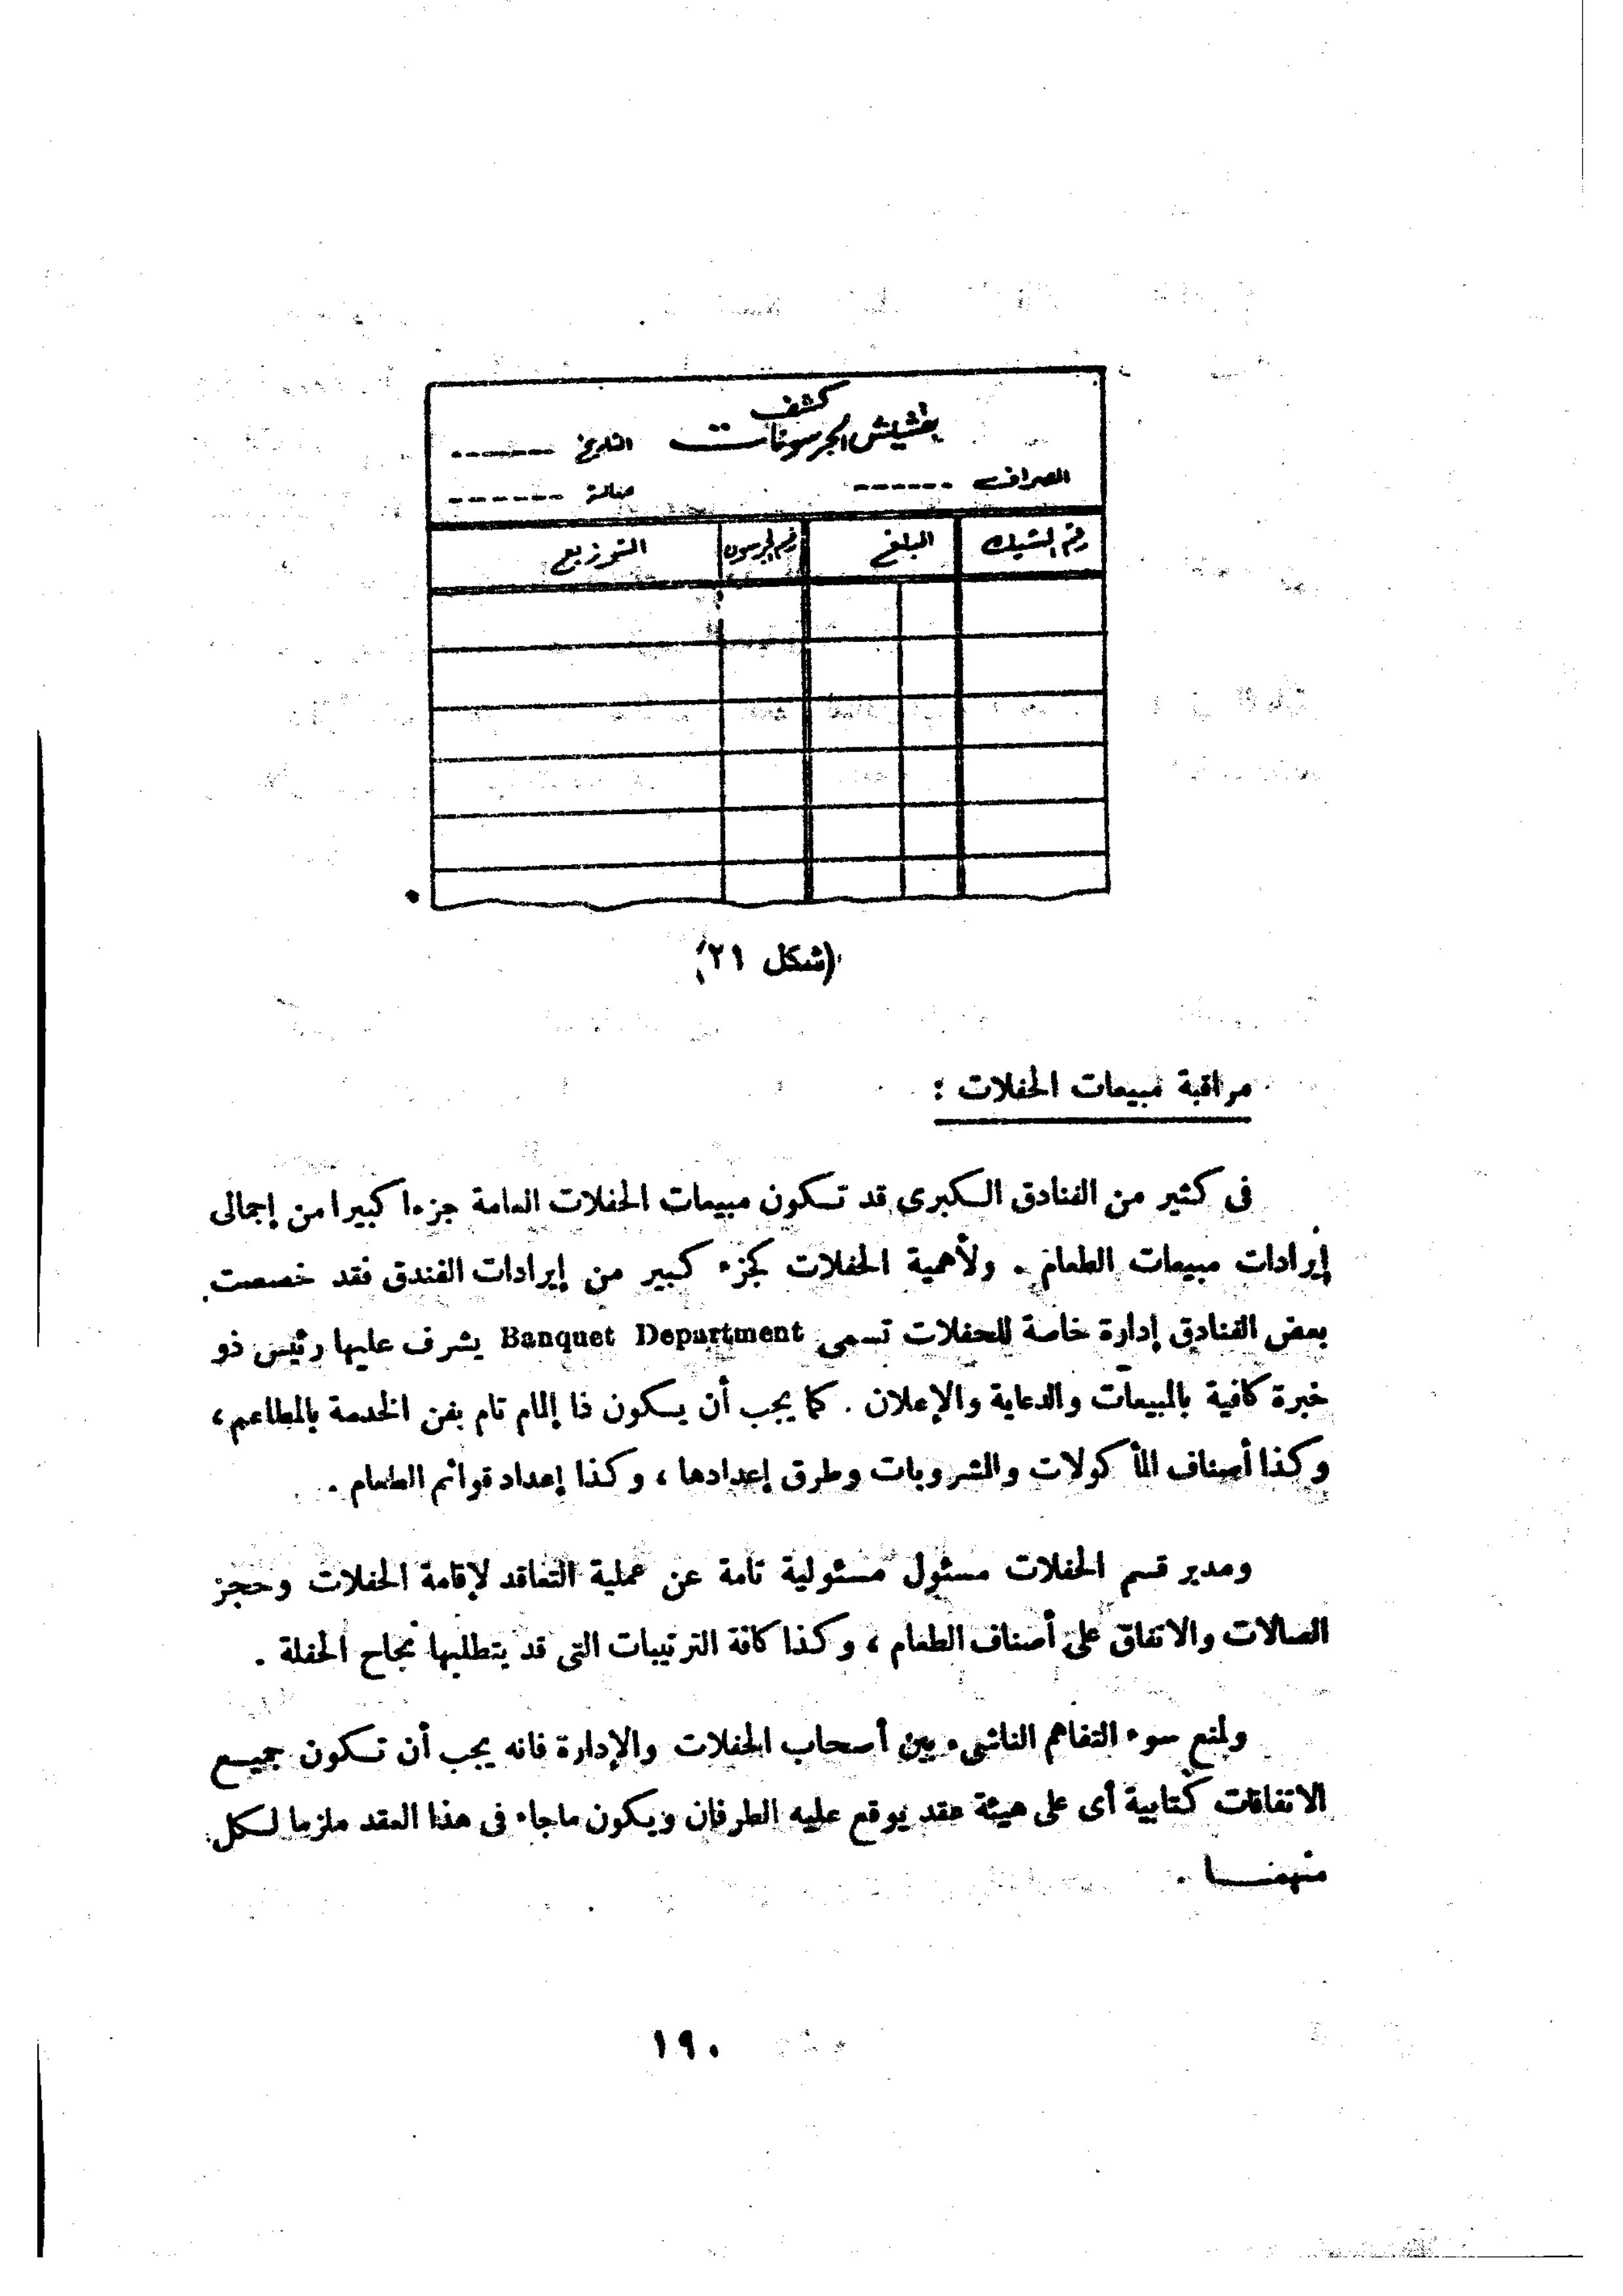 كشف
بقشيش الجرسونات
التاريخ -------
الصراف ------
صالة -------
رقم الشيك المبلغ رقم الجرسون التوزيع
(شكل ٢١)
مراقبة مبيعات الحفلات :
فى كثير من الفنادق الكبرى قد تكون مبيعات الحفلات العامة جزءا كبيرا من إجمالى
إيرادات مبيعات الطعام . ولأهمية الحفلات كجزء كبير من إيرادات الفندق فقد خصصت
بعض الفنادق إدارة خاصة للحفلات تسمى Banquet Department يشرف عليها رئيس ذو
خبرة كافية بالمبيعات والدعاية والإعلان . كما يجب أن يكون ذا إلمام تام بفن الخدمة بالمطاعم ،
وكذا أصناف المأكولات والمشروبات وطرق إعدادها ، وكذا إعداد قوائم الطعام .
ومدير قسم الحفلات مسئول مسئولية تامة عن عملية التعاقد لإقامة الحفلات وحجز
الصالات والاتفاق على أصناف الطعام ، وكذا كافة الترتيبات التى قد يتطلبها نجاح الحفلة .
ولمنع سوء التفاهم الناشىء بين أصحاب الحفلات والإدارة فانه يجب أن تكون جميع
الاتفاقات كتابية أى على هيئة عقد يوقع عليه الطرفان ويكون ماجاء فى هذا العقد ملزما لكل
منهمــا .
١٩٠